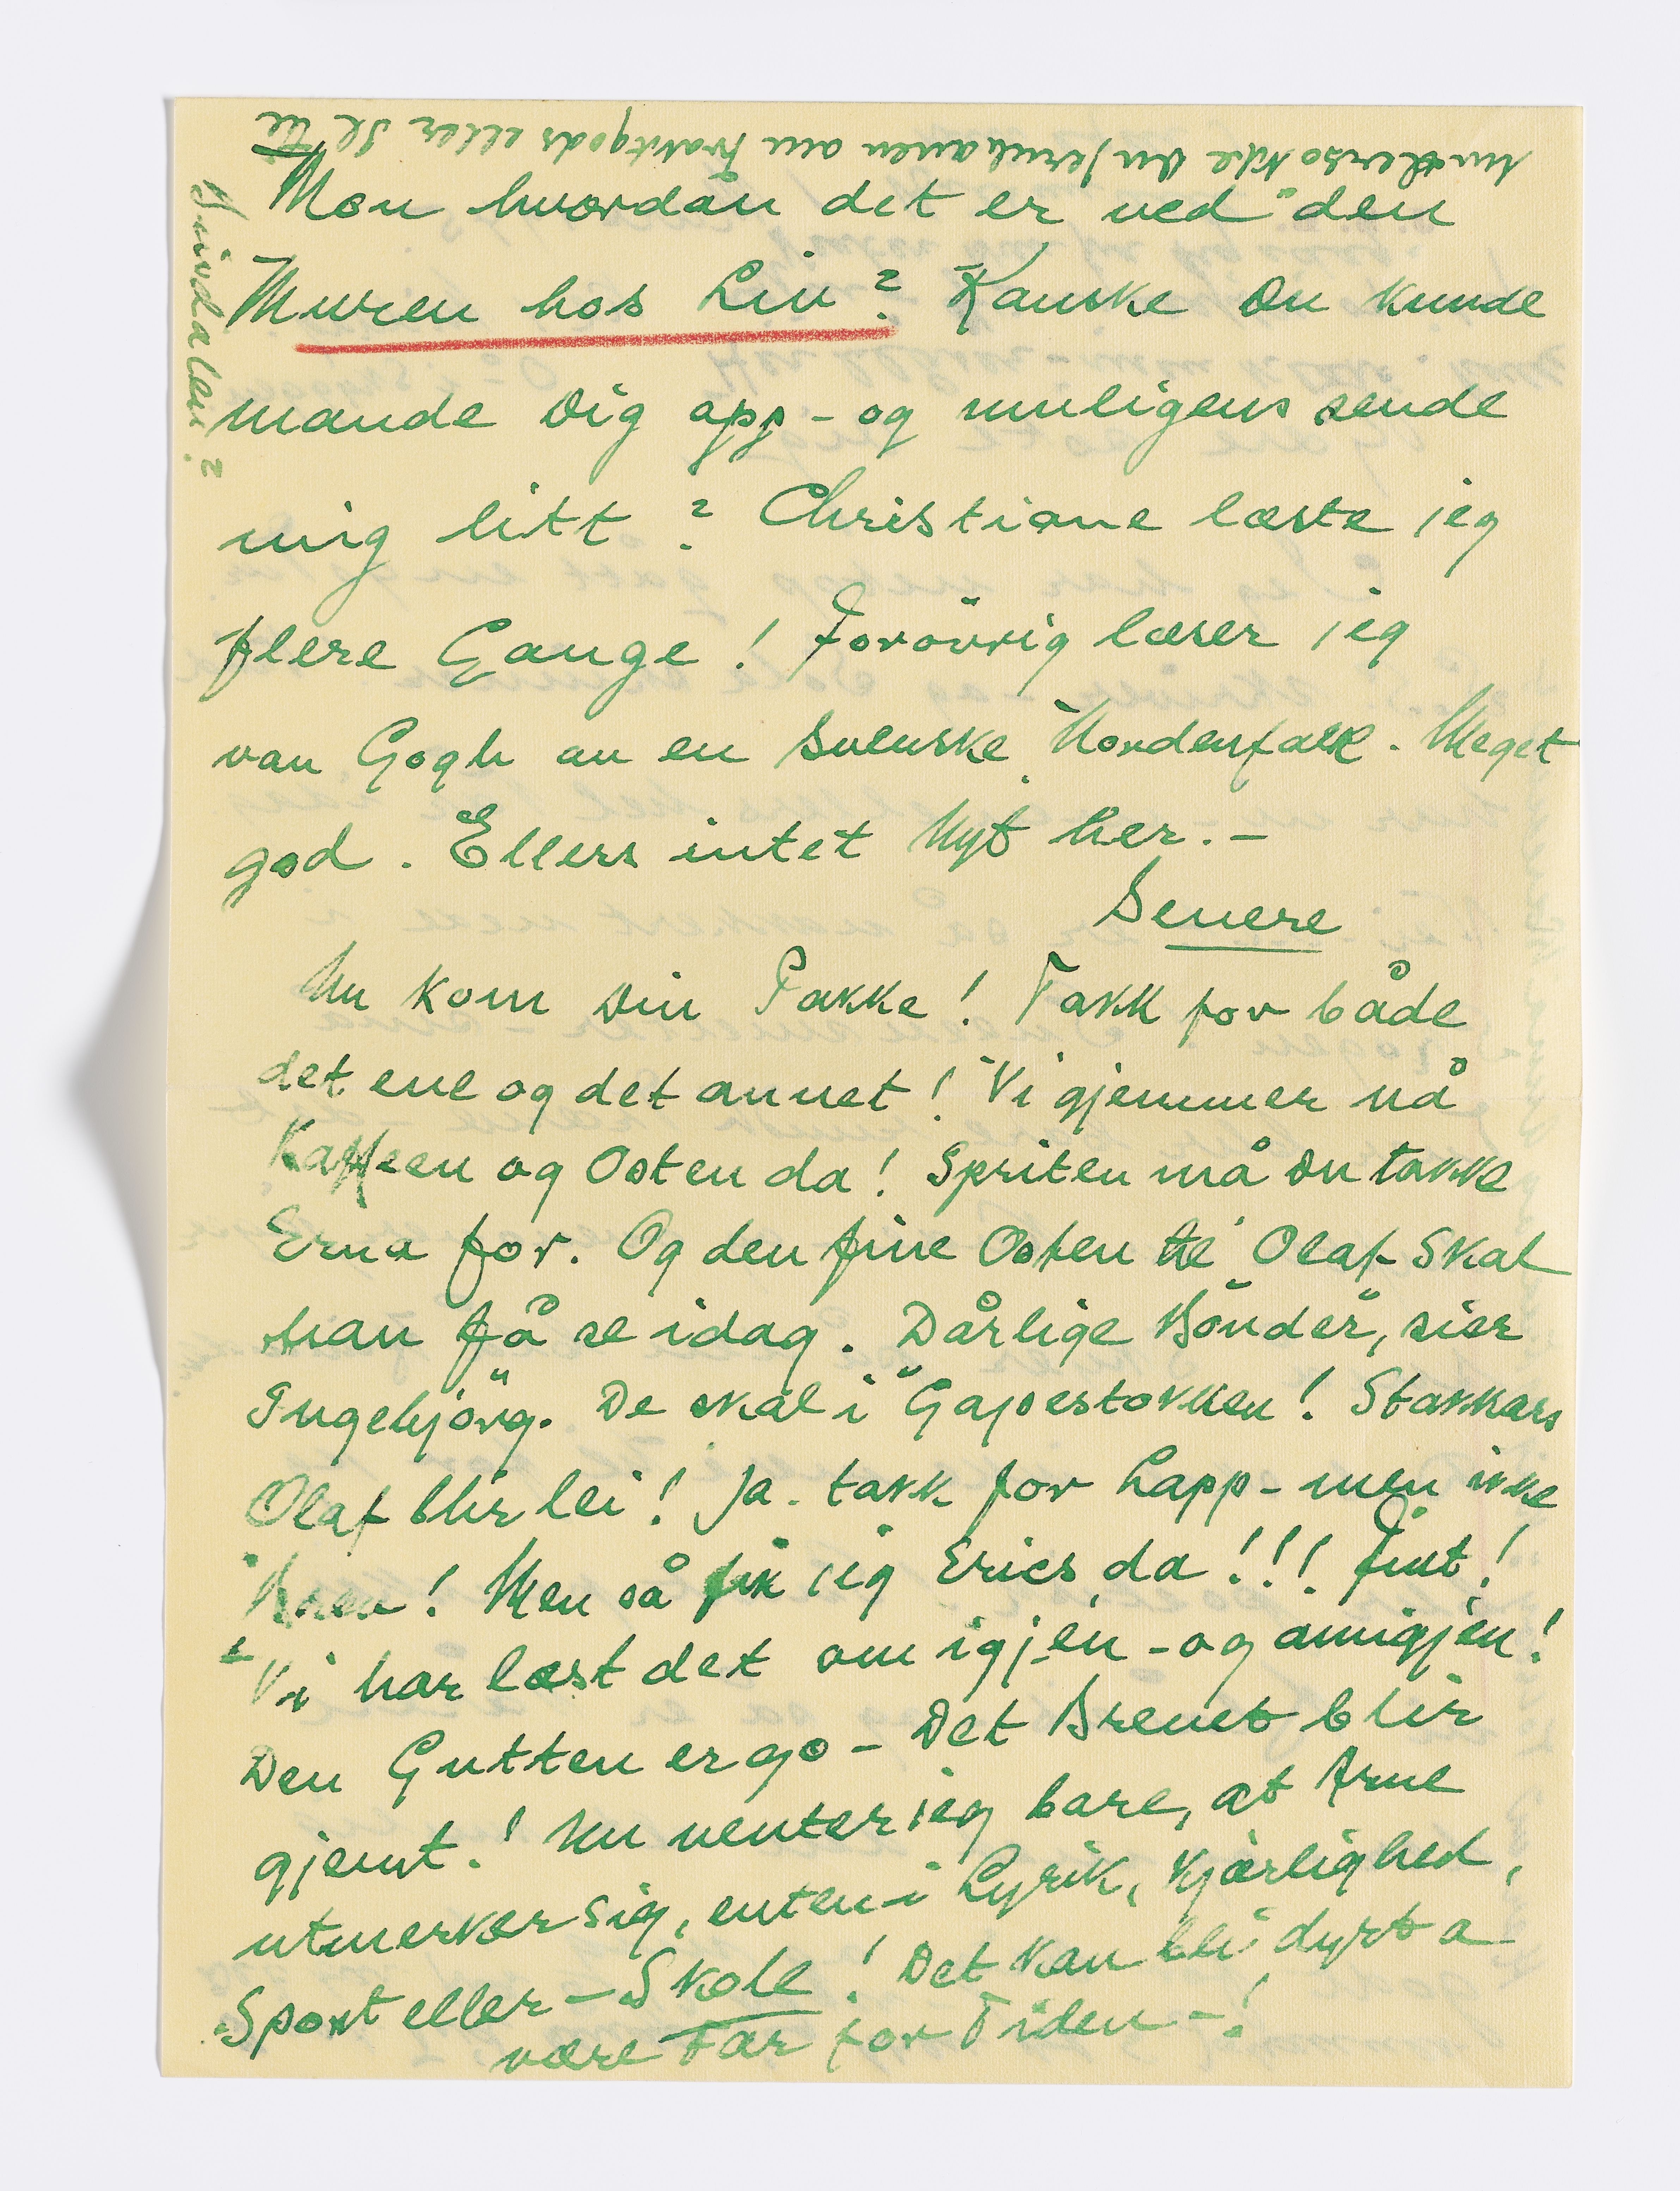 Mon hvordan det er ved "den
Muren hos Liv? Kanske Du kunde
mande Dig opp - og muligens sende
mig litt? Christiane læste jeg
flere Gange! Forövrig læser jeg
van Gogh au en Svenske Nordenfalk. Meget
god. Ellers intet Nyt her. -
Senere
Nu kom Din Pakke! Takk for både
det ene og det annet! Vi gjemmer nå
Kaffeen og Osten da! Spriten må Du takke
Erna for. Og den fine Osten til Olaf skal
han få se idag. Dårlige Bönder, sier
Ingebjörg. De skal i "Gapestokken! Stakkars
Olaf blir lei! Ja. takk for Lapp - men ikke
! Men så fik jeg Erics da!!! Fint!
Vi har læst det om igjen - og omigjen!
Den Gutten er go - Det Brevet blir
gjemt! Nu venter jeg bare, at Arne
utmerker sig, enten i Lyrik, Kjærlighed,
Sport eller - Skole! Det kan bli dyrt a
være Far for Tiden -!
undersökke Du Jernbanen om Fraktgods eller Il til
Sivdalen?